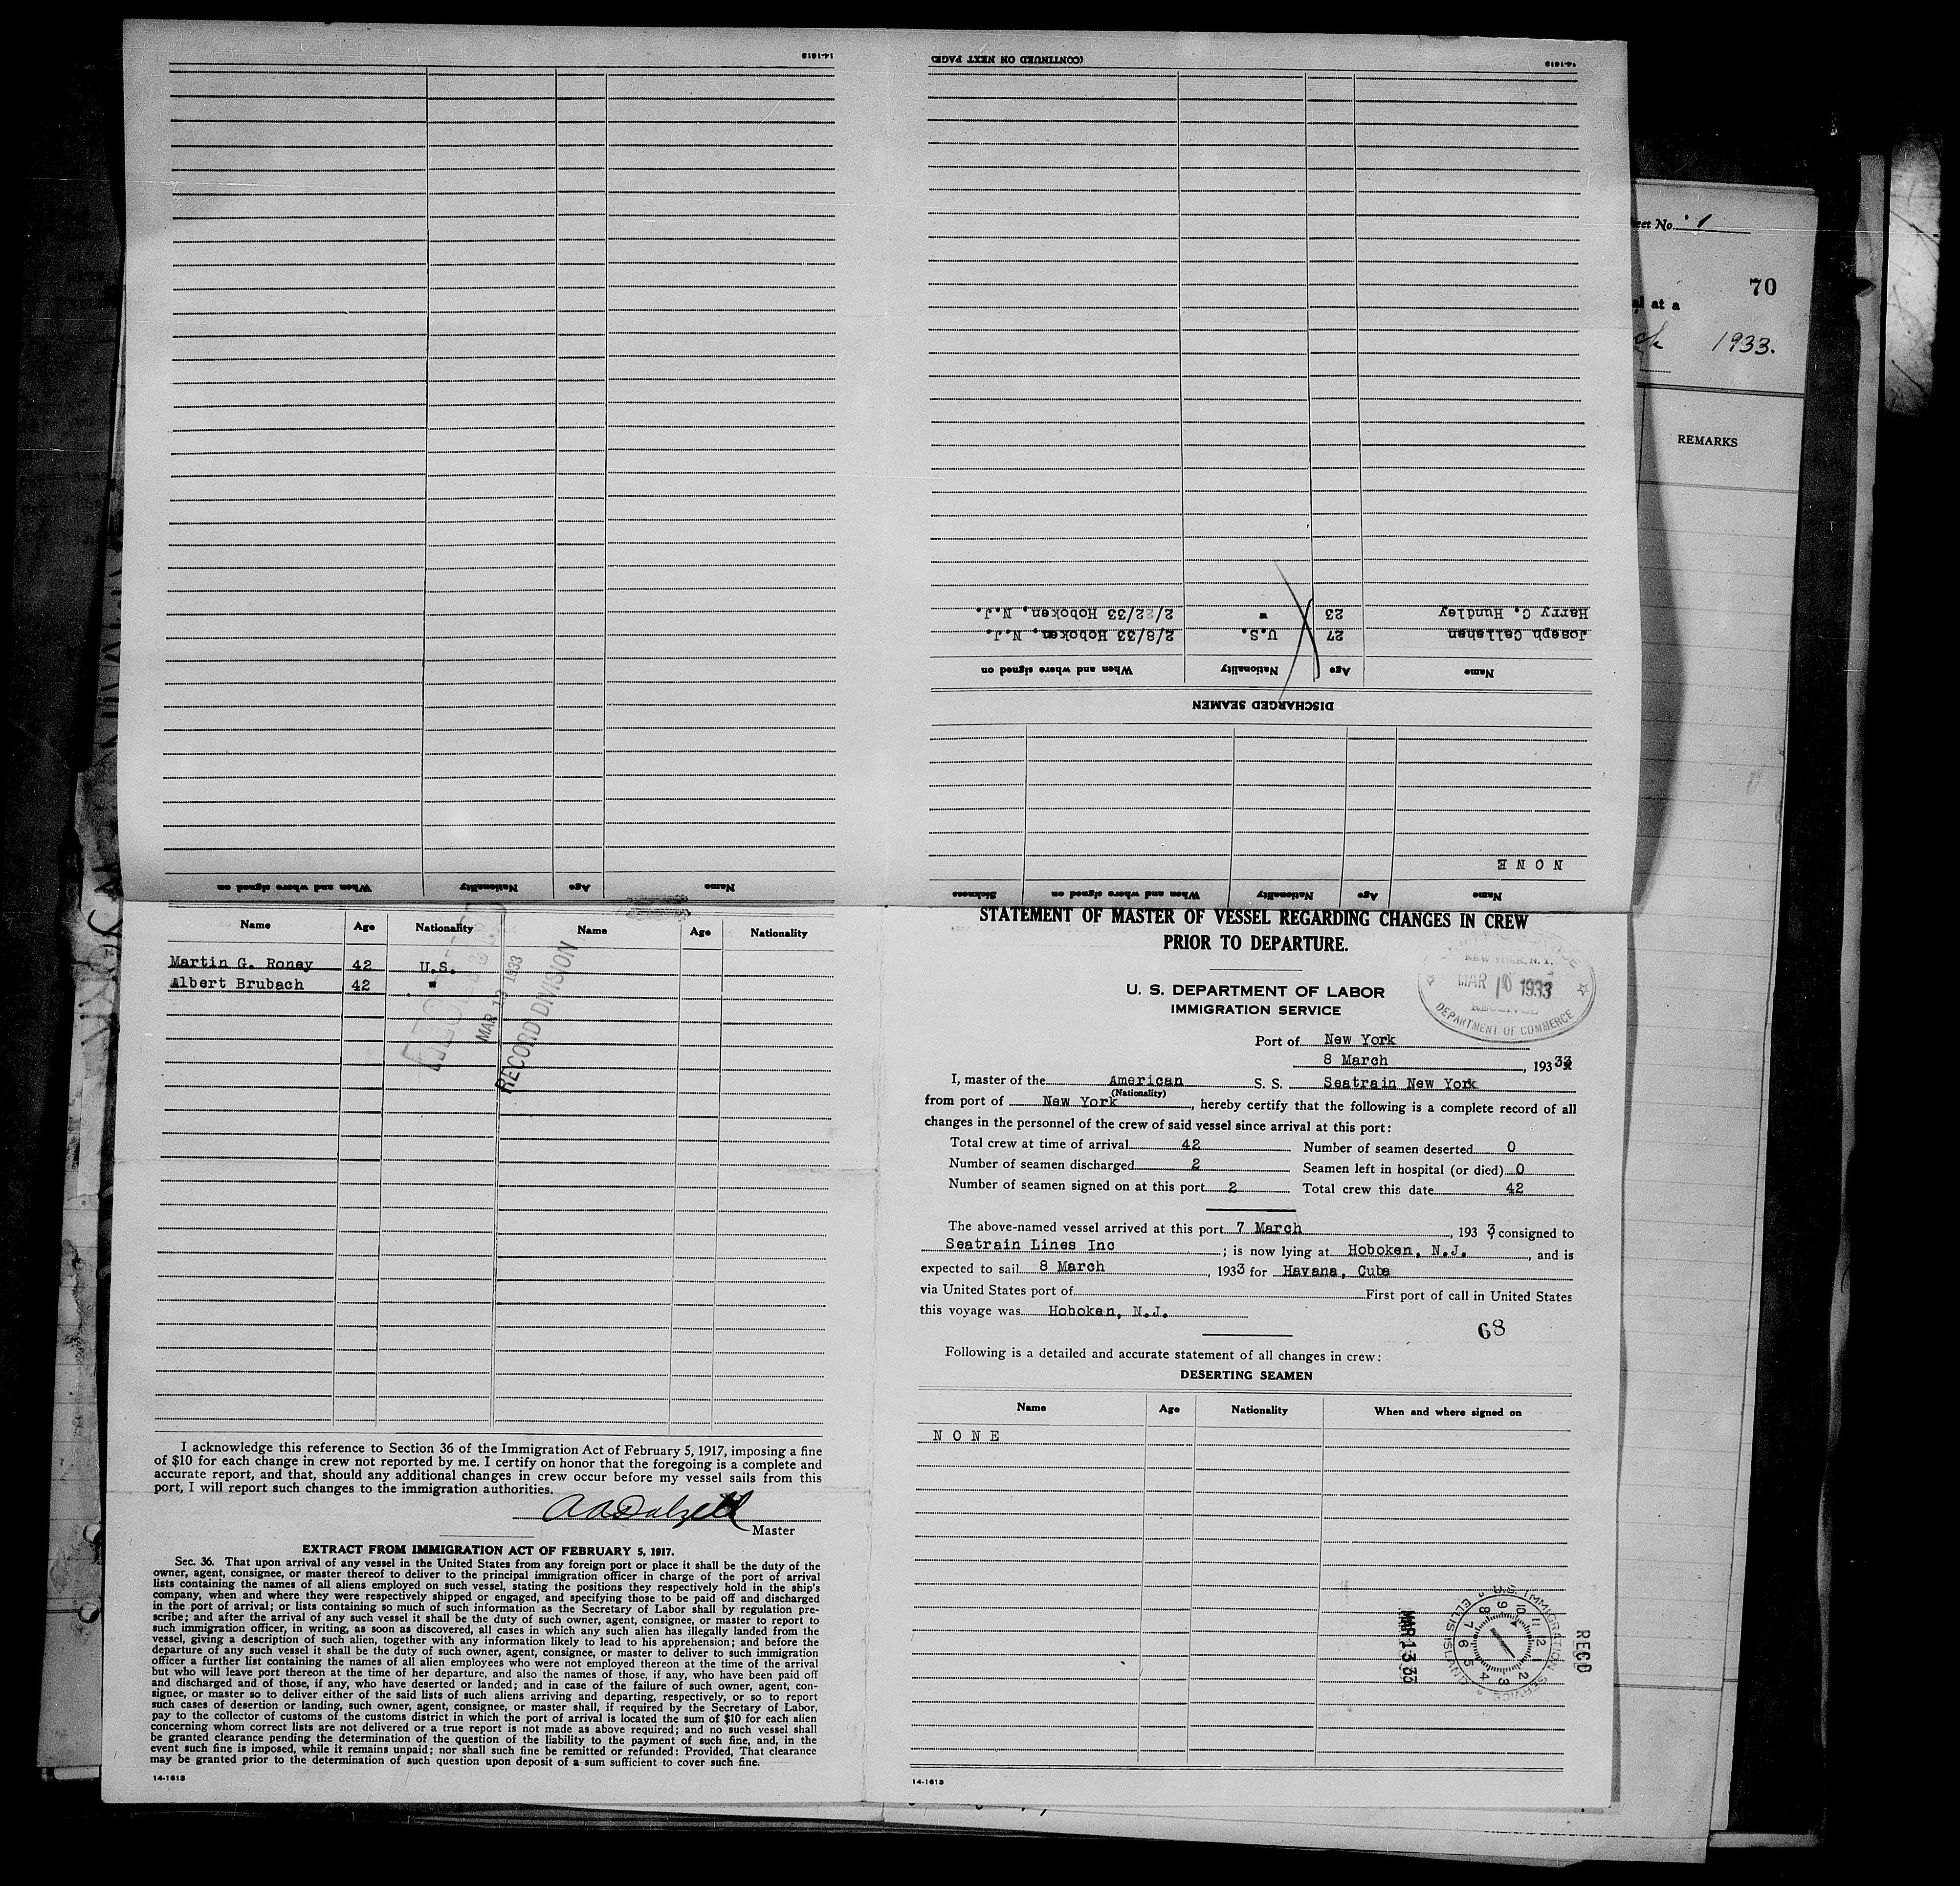 STATEMENT OF MASTER OF VESSEL REGARDING CHANGES IN CREW
PRIOR TO DEPARTURE.
U. S. DEPARTMENT OF LABOR
IMMIGRATION SERVICE
NEW YORK, N. Y.
MAR 10 1933
DEPARTMENT OF COMMERCE
Port of New York
8 March, 1933
I, master of the American S. S. Seatrain New York
(Nationality)
from port of New York, hereby certify that the following is a complete record of all
changes in the personnel of the crew of said vessel since arrival at this port:
Total crew at time of arrival 42 Number of seamen deserted 0
Number of seamen discharged 2 Seamen left in hospital (or died) 0
Number of seamen signed on at this port 2 Total crew this date 42
The above-named vessel arrived at this port 7 March, 1933 consigned to
Seatrain Lines Inc; is now lying at Hoboken, N.J., and is
expected to sail 8 March, 1933 for Havana, Cuba
via United States port of First port of call in United States
this voyage was Hoboken, N.J.
68
Following is a detailed and accurate statement of all changes in crew:
DESERTING SEAMEN
Name Age Nationality When and where signed on
NONE
U.S. IMMIGRATION SERVICE
ELLIS ISLAND
12 1 2 3 4 5 6 7 8 9 10 11
REC'D
MAR 13 33
14-1613
Name Age Nationality When and where signed on Sickness
NONE
DISCHARGED SEAMEN
Name Age Nationality When and where signed on
Joseph Callahan 27 U.S. 2/8/33 Hoboken, N.J.
Harry C. Hundley 23 " 2/22/33 Hoboken, N.J.
14-1613
(CONTINUED ON NEXT PAGE)
Name Age Nationality When and where signed on
14-1613
Name Age Nationality Name Age Nationality
Martin G. Roney 42 U.S.
Albert Brubach 42 "
MAR 13 1933
RECORD DIVISION
I acknowledge this reference to Section 36 of the Immigration Act of February 5, 1917, imposing a fine
of $10 for each change in crew not reported by me. I certify on honor that the foregoing is a complete and
accurate report, and that, should any additional changes in crew occur before my vessel sails from this
port, I will report such changes to the immigration authorities.
A A Dalzell
Master
EXTRACT FROM IMMIGRATION ACT OF FEBRUARY 5, 1917.
Sec. 36. That upon arrival of any vessel in the United States from any foreign port or place it shall be the duty of the
owner, agent, consignee, or master thereof to deliver to the principal immigration officer in charge of the port of arrival
lists containing the names of all aliens employed on such vessel, stating the positions they respectively hold in the ship's
company, when and where they were respectively shipped or engaged, and specifying those to be paid off and discharged
in the port of arrival; or lists containing so much of such information as the Secretary of Labor shall by regulation pre-
scribe; and after the arrival of any such vessel it shall be the duty of such owner, agent, consignee, or master to report to
such immigration officer, in writing, as soon as discovered, all cases in which any such alien has illegally landed from the
vessel, giving a description of such alien, together with any information likely to lead to his apprehension; and before the
departure of any such vessel it shall be the duty of such owner, agent, consignee, or master to deliver to such immigration
officer a further list containing the names of all alien employees who were not employed thereon at the time of the arrival
but who will leave port thereon at the time of her departure, and also the names of those, if any, who have been paid off
and discharged and of those, if any, who have deserted or landed; and in case of the failure of such owner, agent, con-
signee, or master so to deliver either of the said lists of such aliens arriving and departing, respectively, or so to report
such cases of desertion or landing, such owner, agent, consignee, or master shall, if required by the Secretary of Labor,
pay to the collector of customs of the customs district in which the port of arrival is located the sum of $10 for each alien
concerning whom correct lists are not delivered or a true report is not made as above required; and no such vessel shall
be granted clearance pending the determination of the question of the liability to the payment of such fine, and, in the
event such fine is imposed, while it remains unpaid; nor shall such fine be remitted or refunded: Provided, That clearance
may be granted prior to the determination of such question upon deposit of a sum sufficient to cover such fine.
14-1613
No. 1
70
at a
1933.
REMARKS